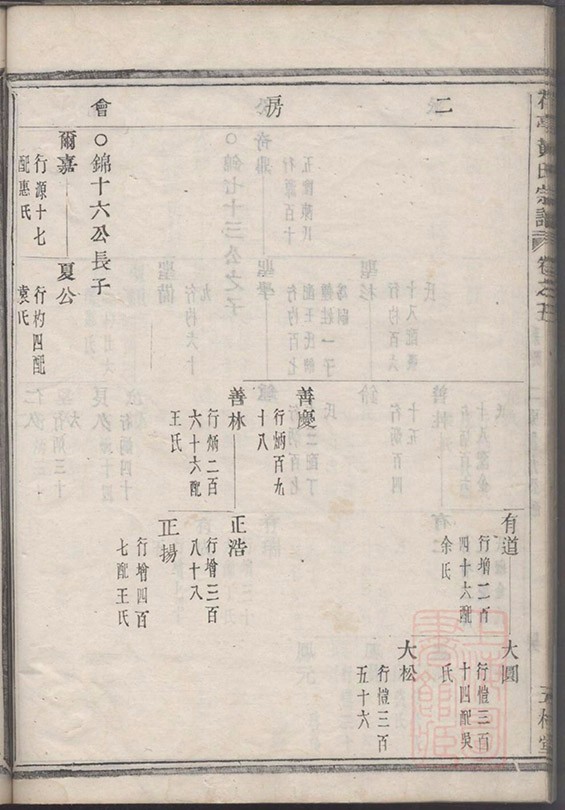 宗譜
卷之五
二房會
有道
行增二百
四十六配
余氏
大圓
行愷三百
十四配吳
氏
大松
行愷三百
五十六
善慶
行炳百九
十八
善林
行炳二百
六十六配
王氏
正浩
行增三百
八十八
正揚
行增四百
七配王氏
○錦十六公長子
爾嘉
行源十七
配惠氏
夏公
行杓四配
袁氏